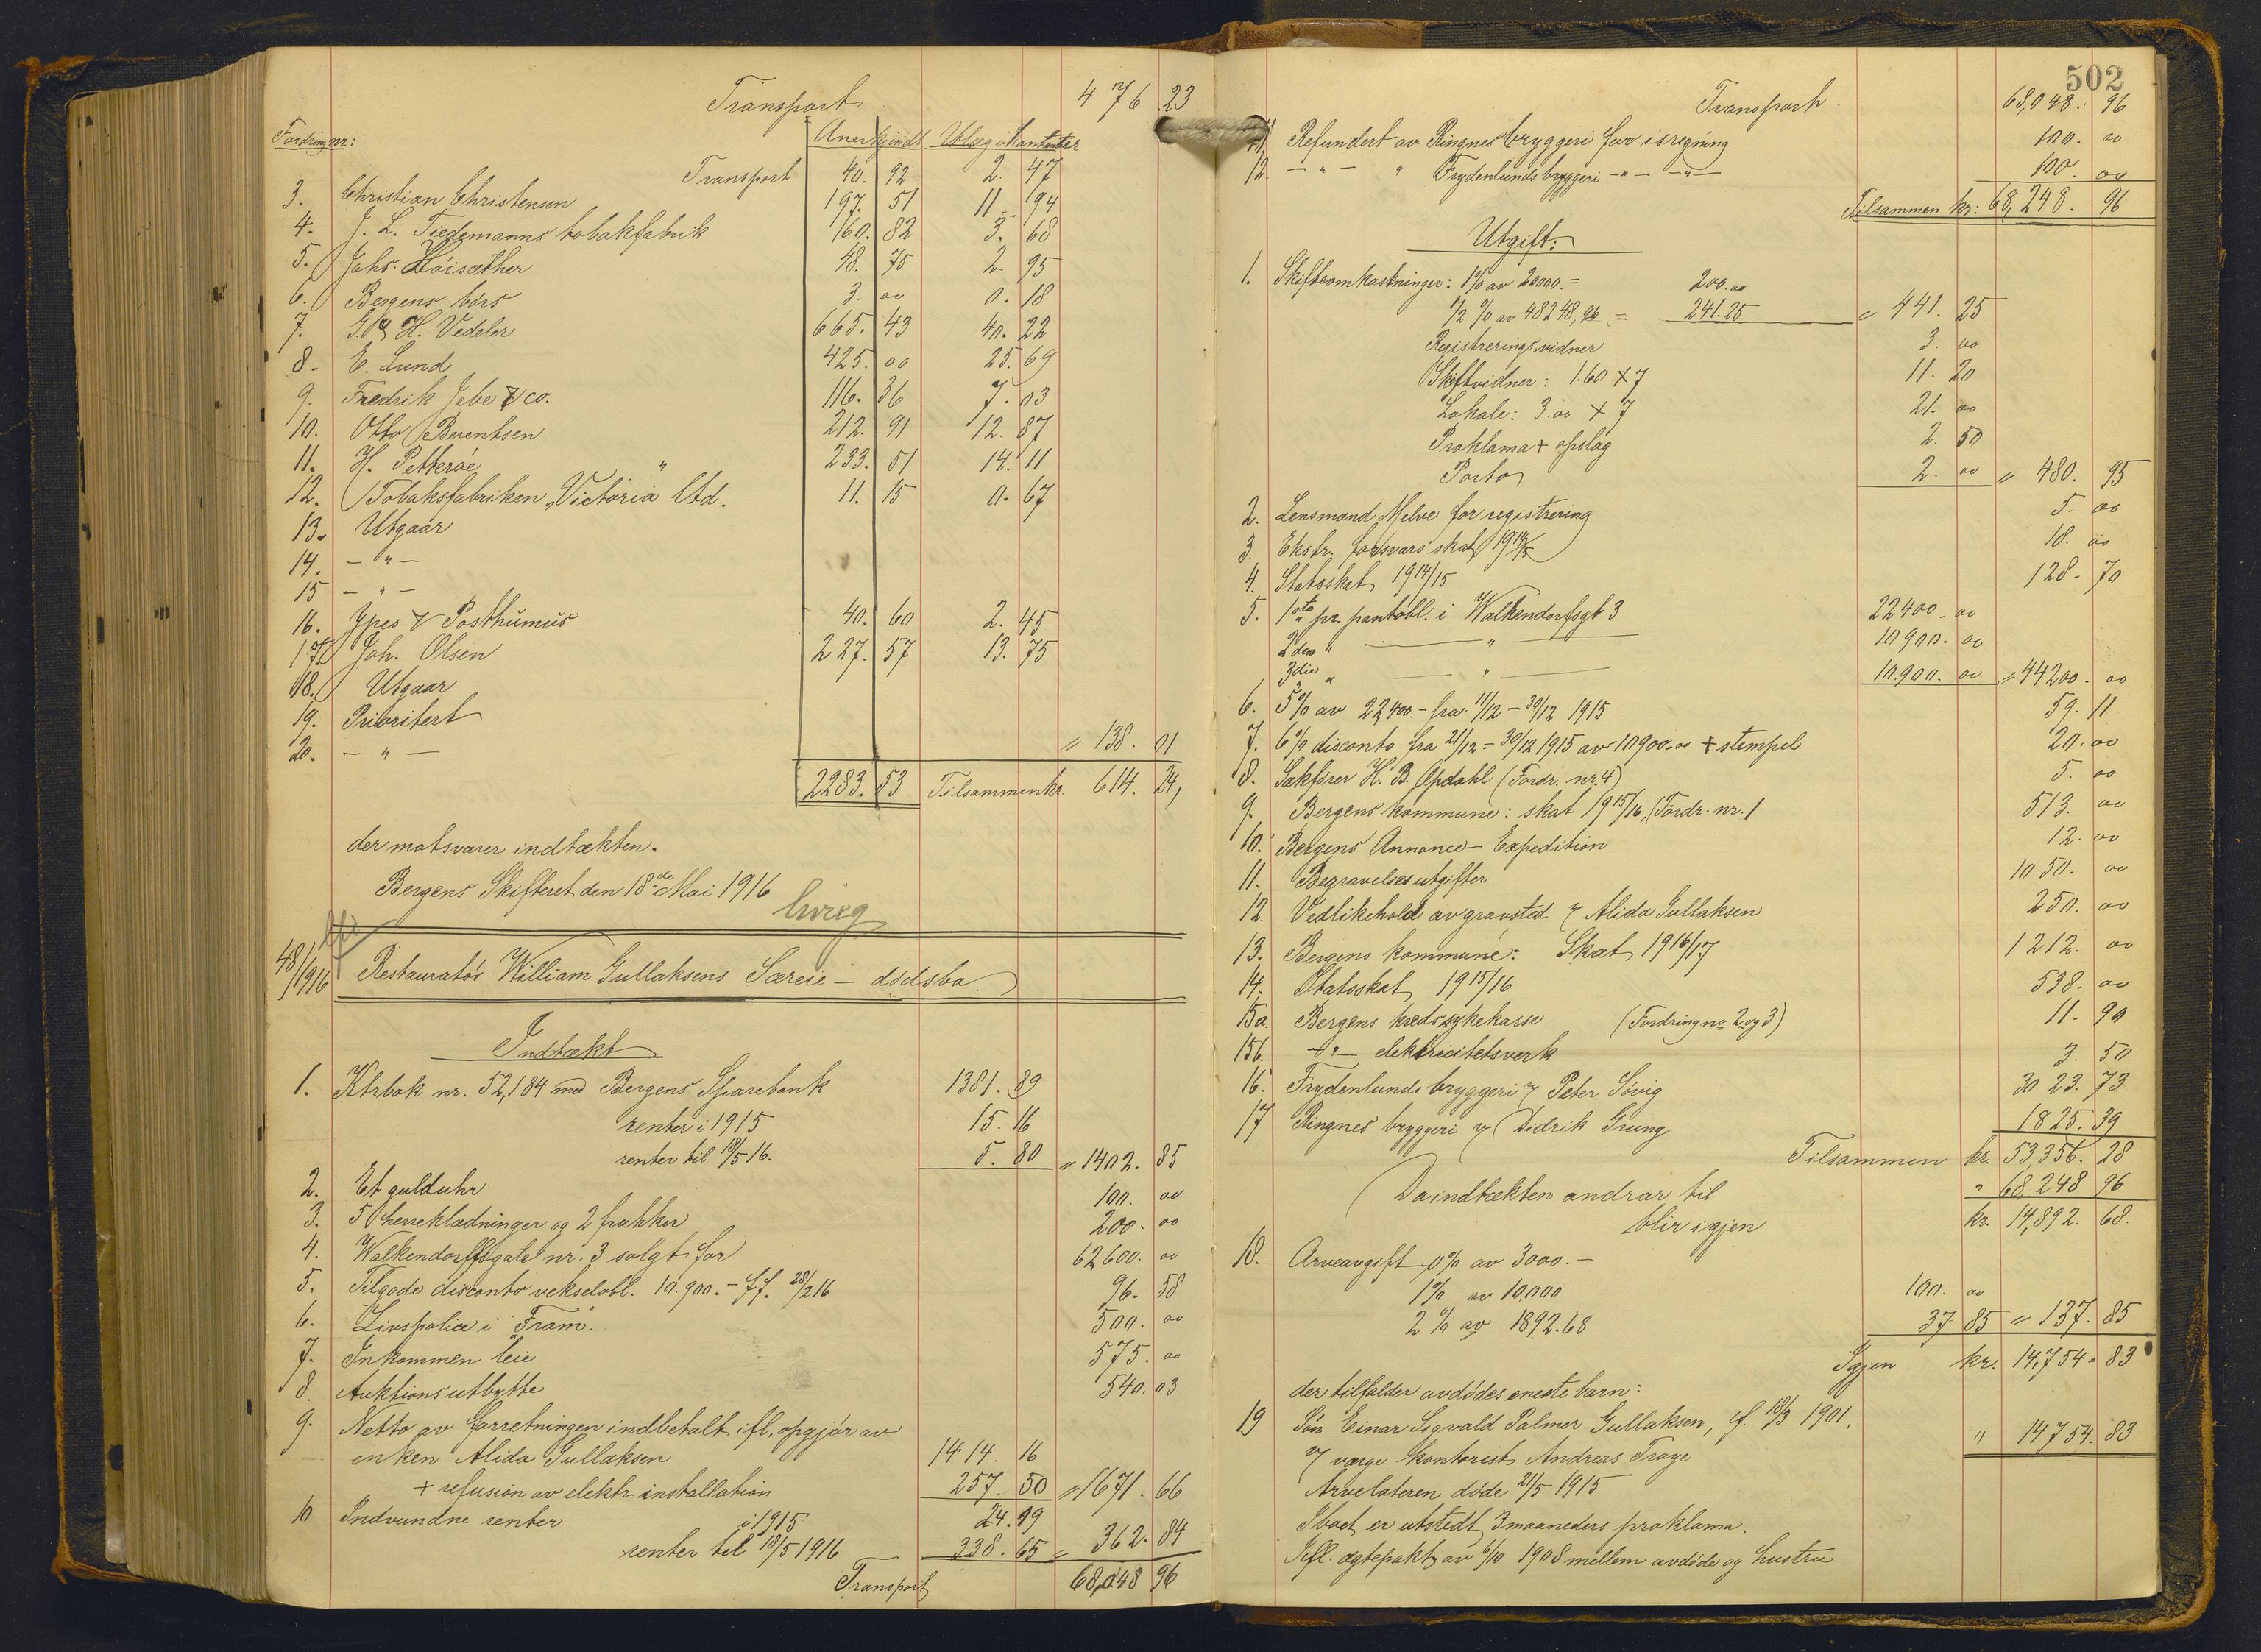 Transport 476 23
Fordring nr.: Anerkjendt Utlæg i kontanter
Transport 40. 92 2. 47
3. Christian Christensen 197. 51 11. 94
4. J. L. Tiedemanns tobakfabrik 160. 82 3. 68
5. Johs. Höisæther 48. 75 2. 95
6. Bergens börs 3. 00 0. 18
7. G. & H. Vedeler 665. 43 40. 22
8. E. Lund 425. 00 25. 69
9. Fredrik Jebe & co. 116. 36 7. 03
10. Otto Berentsen 212. 91 12. 87
11. H. Petteröe 233. 51 14. 11
12. Tobaksfabriken "Victoria" Ltd. 11. 15 0. 67
13. Utgaar
14. – " –
15 – " –
16. Ypes & Posthumus 40. 60 2. 45
17. Joh. Olsen 227. 57 13. 75
18. Utgaar
19. Prioritert
20. – " – = 138. 01
2283. 53 Tilsammen kr. 614. 24,
der motsvarer indtækten.
Bergens Skifteret den 18de Mai 1916
48/1916 Restauratör William Gullaksens Særeie – dödsbo.
Indtækt
1. Ktrbok nr. 52,184 med Bergens Sparebank 1381. 89
renter i 1915 15. 16
renter til 18/5 16. 5. 80 = 1402. 85
2. Et gulduhr 100. 00
3. 5 herreklædninger og 2 frakker 200. 00
4. Walkendorffsgate nr. 3 solgt for 62600. 00
5. Tilgode disconto vekselobl. 10.900.– ff. 28/2 16 96. 58
6. Livspolice i "Fram". 500. 00
7. Inkommen leie 575. 00
8. Auktionsutbytte 540. 03
9. Netto av forretningen indbetalt ifl. opgjör av
enken Alida Gullaksen 1414. 16
+ refusion av elektr. installation 257. 50 = 1671. 66
10 Indvundne renter i 1915 24. 19
renter til 18/5 1916 338. 65 = 362. 84
Transport 68,048 96
502
Transport 68,048. 96
11. Refundert av Ringnes bryggeri for isregning 100. 00
12. – " – " Frydenlunds bryggeri – " – – " – 100. 00
Tilsammen kr: 68,248. 96
Utgift:
1. Skifteomkostninger: 1% av 20000. = 200.00
1/2 % av 48248,96 = 241.25 = 441. 25
Registreringsvidner 3. 00
Skiftvidner: 1.60 x 7 11. 20
Lokale: 3.00 x 7 21. 00
Proklama + opslag 2. 50
Porto 2. 00 = 480. 95
2. Lensmand Melve for registrering 5. 00
3. Ekstr. forsvarsskat 1914/15 18. 00
4. Statsskat 1914/15 128. 70
5. 1ste pr. pantobl. i Walkendorfsgt 3 22400. 00
2den " " 10900. 00
3die " " 10.900. 00 = 44200. 00
6. 5% av 22,400.– fra 11/12 – 30/12 1915 59. 11
7. 6% disconto fra 21/12 – 30/12 1915 av 10900.00 + stempel 20. 00
8. Sakförer H. B. Opdahl (Fordr. nr. 4) 5. 00
9. Bergens kommune: skat 1915/16, (Fordr. nr. 1 513. 00
10. Bergens Annonce-Expedition 12. 00
11. Begravelsesutgifter 1050. 00
12. Vedlikehold av gravsted v/ Alida Gullaksen 250. 00
13. Bergens kommune: Skat 1916/17 1212. 00
14. Statsskat 1915/16 538. 00
15a. Bergens kredssykekasse (Fordring nr. 2 og 3) 11. 90
15b. – " – elektricitetsverk 3. 50
16. Frydenlunds bryggeri v/ Peter Sövig 3023. 73
17 Ringnes bryggeri v/ Didrik Grung 1825. 39
Tilsammen kr. 53,356. 28
Da indtækten andrar til " 68,248 96
blir igjen kr. 14,892. 68.
18. Arveavgift 0% av 3000.–
1% av 10,000 100. 00
2% av 1892.68 37 85 = 137. 85
Igjen kr. 14,754. 83
der tilfalder avdödes eneste barn:
19 Sön Einar Sigvald Palmer Gullaksen, f. 18/3 1901. " 14754. 83
v/ værge kontorist Andreas Traye
Arvelateren döde 21/5 1915
I boet er utstedt 3 maaneders proklama.
Ifl. ægtepakt av 6/10 1908 mellem avdöde og hustru